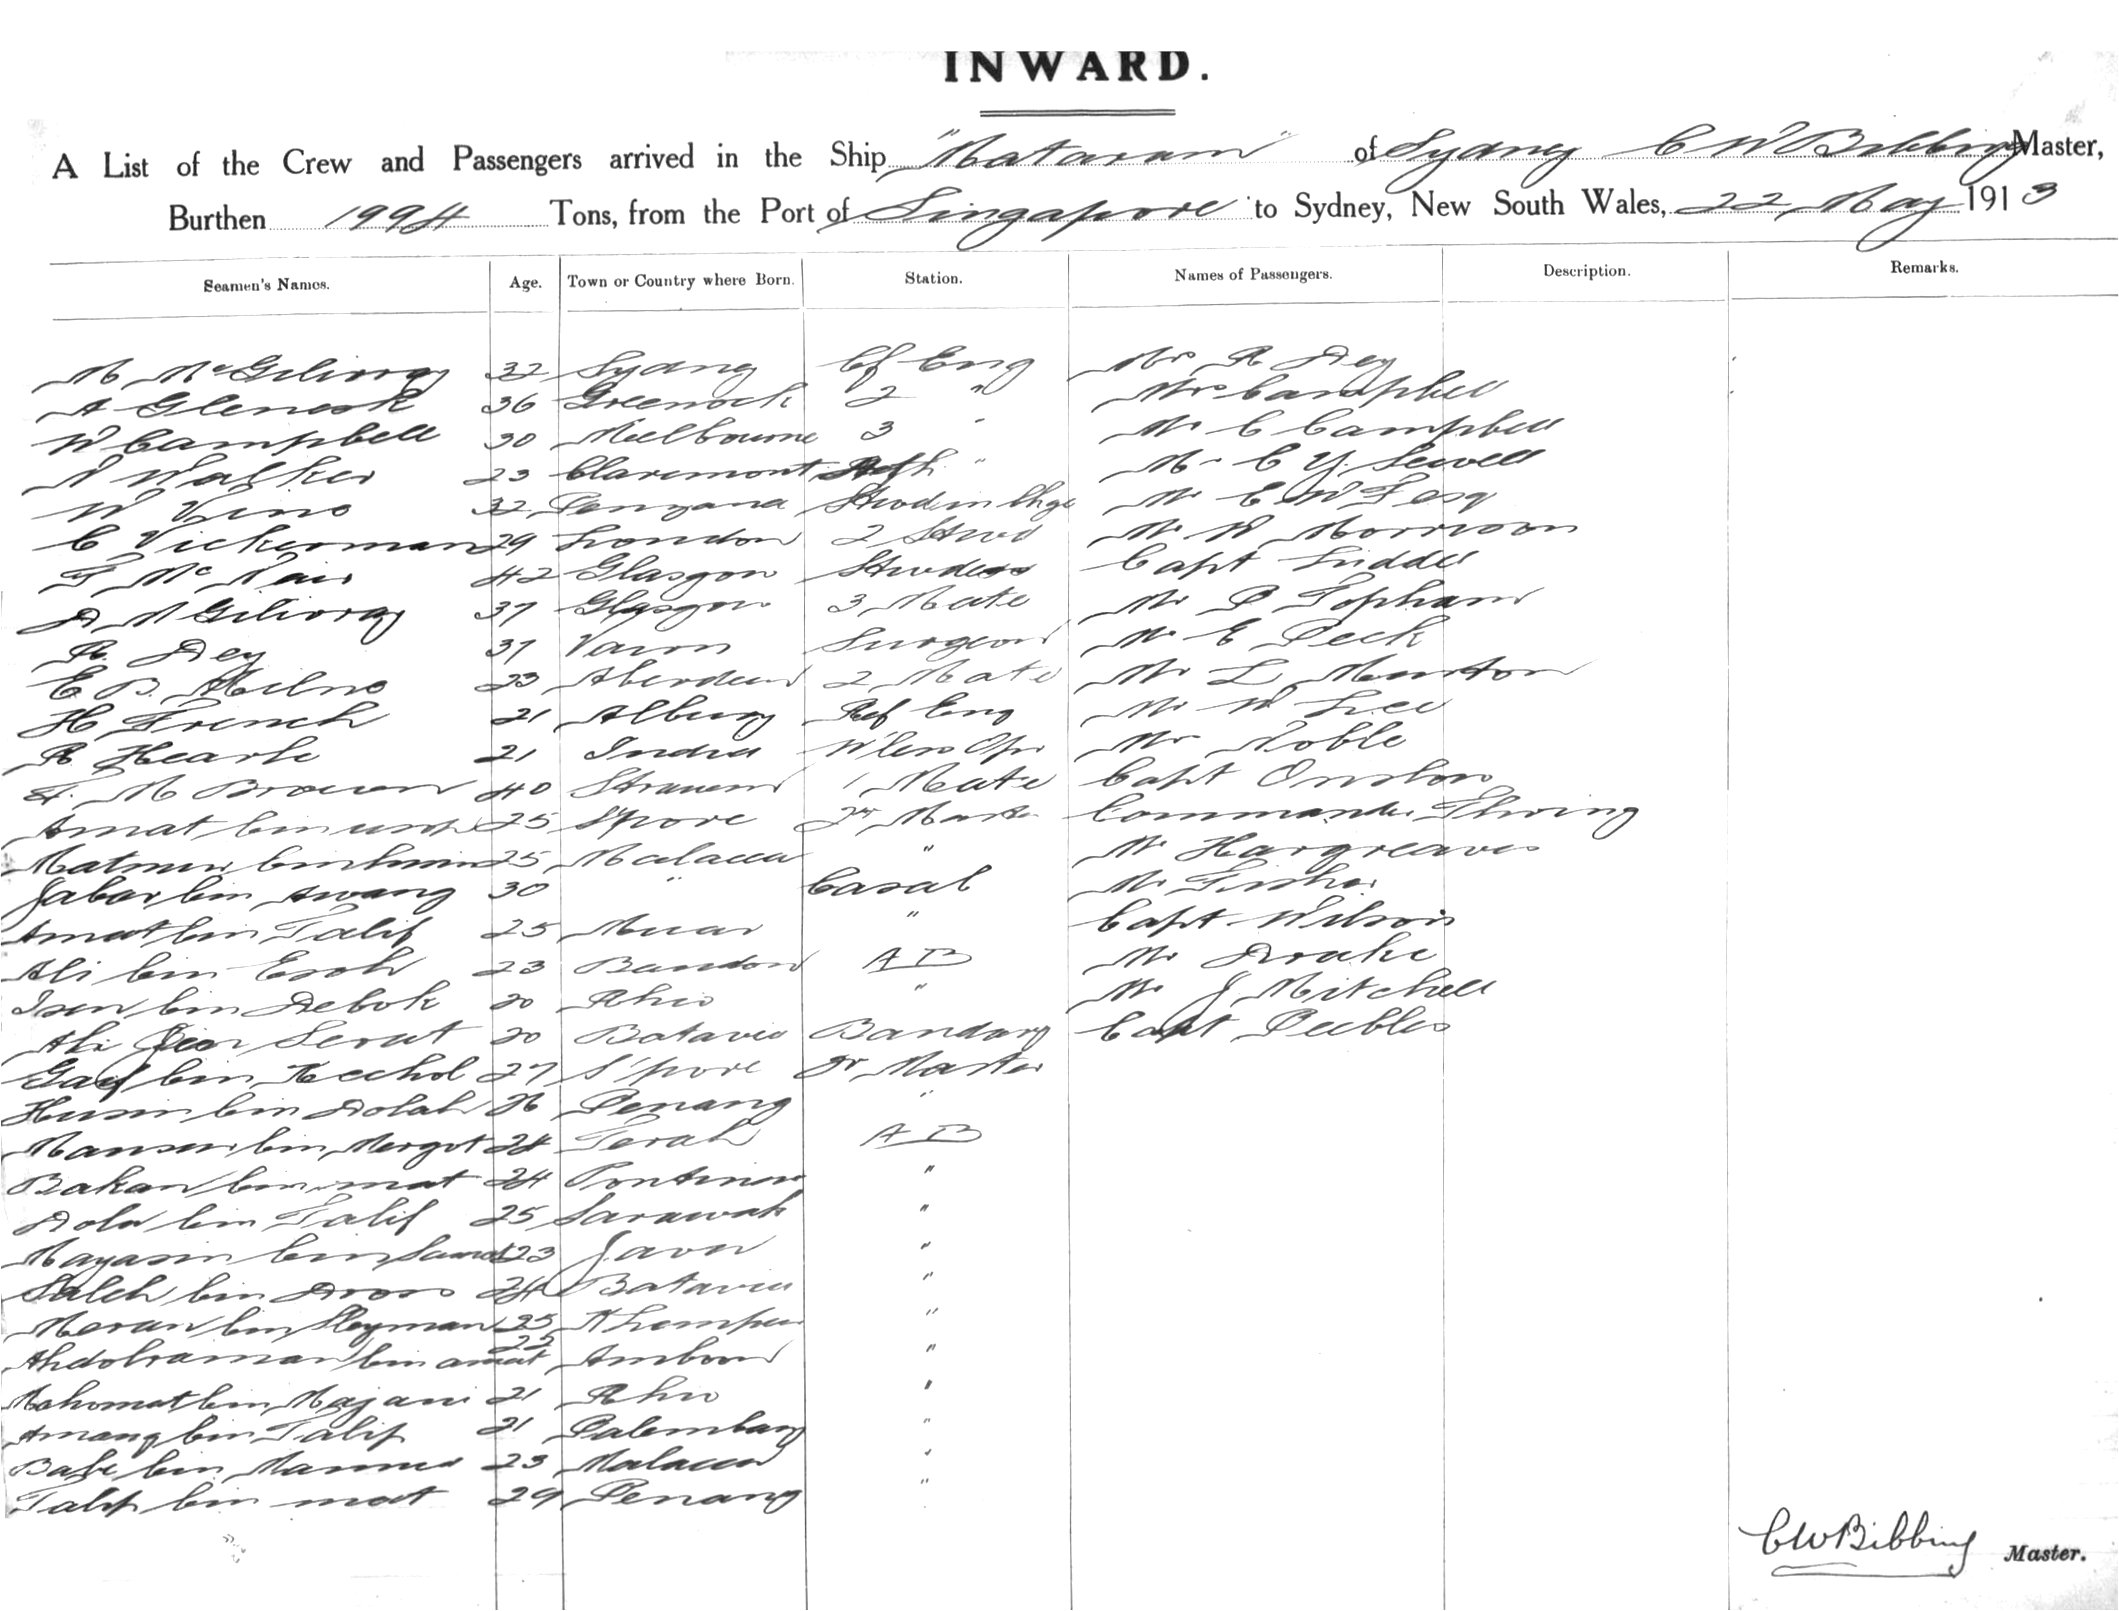 INWARD.
A List of the Crew and Passengers arrived in the Ship "Mataram" of Sydney C W Bibbing Master,
Burthen 1994 Tons, from the Port of Singapore to Sydney, New South Wales, 22 May 1913
Seamen's Names. Age. Town or Country where Born. Station. Names of Passengers. Description. Remarks.
M McGilivray 32 Sydney Cf Eng Mrs R Dey
A Glencook 36 Greenock 2 " Mrs Campbell
W Campbell 30 Melbourne 3 " Mr C Campbell
N Walker 23 Claremont " Mr C Y. Sewell
W Vino 32 Stwd in Chge Mr E W Fesq
C Vickerman 29 London 2 Stwd Mr W Morrison
F McNair 42 Glasgow Stwdess Capt Liddell
D McGilivray 37 Glasgow 3 Mate Mr P Topham
R. Dey 37 Surgeon Mr E Peck
E B. Milne 23 Aberdeen 2 Mate Mr L Murton
H French 21 Albury Ref Eng Mr W Lee
R Hearle 21 India W'less Opr Mr Noble
F. M Brown 40 1 Mate Capt Onslow
Amat bin 25 S'pore Commander Thring
bin 25 Malacca " Mr Hargreaves
Jabar bin Awang 30 " Casab Mr Fisher
Amat bin Talif 25 Muar " Capt Wilson
Ali bin Esoh 23 A B Mr Drake
Isen bin Debok 20 Rhio " Mr J Mitchell
Ali Serut 20 Batavia Bandary Capt Peebles
bin Kechol 27 S'pore Qr Master
Husin bin Dolah 26 Penang "
bin 24 Perak A B
Bakan bin mat 24 "
Dola bin Talif 25 Sarawak "
bin 23 Java "
Saleh bin 24 Batavia "
bin Sleyman 25 "
bin amat 22 Ambon "
Mahomat bin Majani 21 Rhio "
Amang bin Talip 21 Palembang "
bin 23 Malacca "
Talip bin mat 29 Penang "
CW Bibbing Master.